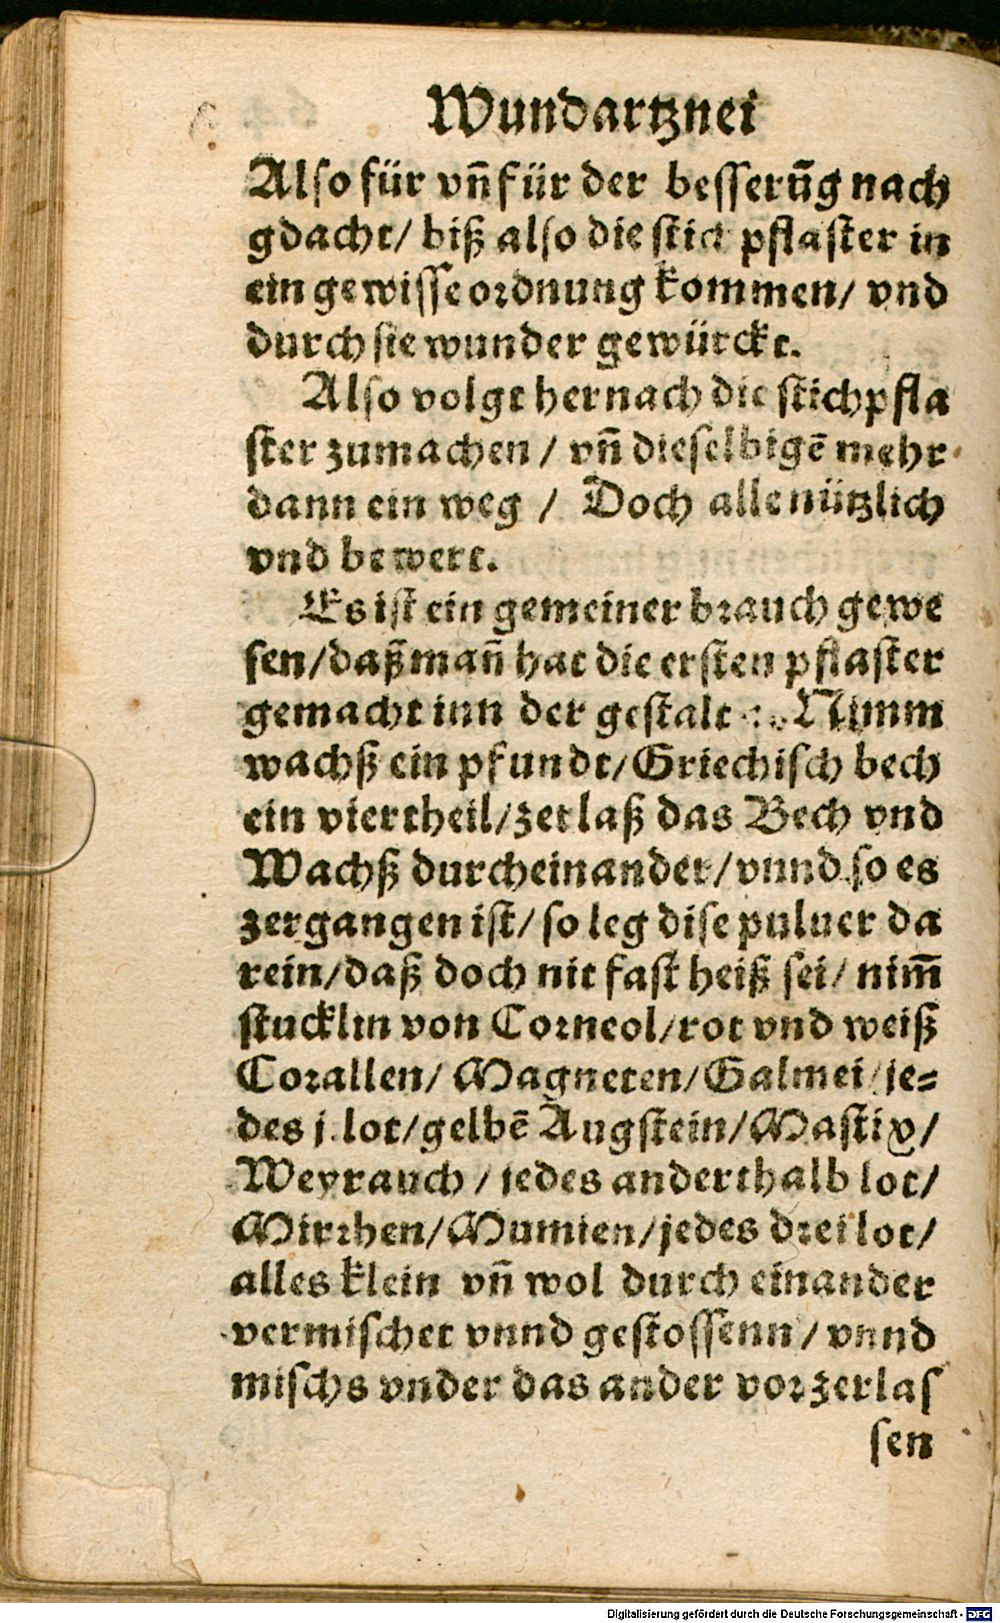 Wundartznei
Also für vñ für der besserūg nach
gdacht/ biß also die stich pflaster in
ein gewisse ordnung kommen/ vnd
durch sie wunder gewürckt.
Also volgt hernach die stichpfla
ster zumachen / vñ dieselbigē mehr
dann ein weg / Doch alle nützlich
vnd bewert.
Es ist ein gemeiner brauch gewe
sen/daß mañ hat die ersten pflaster
gemacht inn der gestalt Nimm
wachß ein pfundt/Griechisch bech
ein viertheil/zerlaß das Bech vnd
Wachß durcheinander/vnnd so es
zergangen ist/ so leg dise puluer da
rein/daß doch nit fast heiß sei/ nim̄
stucklin von Corneol/rot vnd weiß
Corallen/ Magneten/Galmei/je=
des j. lot/gelbē Augstein/Mastix/
Weyrauch / jedes anderthalb lot/
Mirrhen/Mumien/jedes drei lot/
alles klein vñ wol durch einander
vermischet vnnd gestossenn / vnnd
mischs vnder das ander vor zerlas
sen
Digitalisierung gefördert durch die Deutsche Forschungsgemeinschaft - DFG